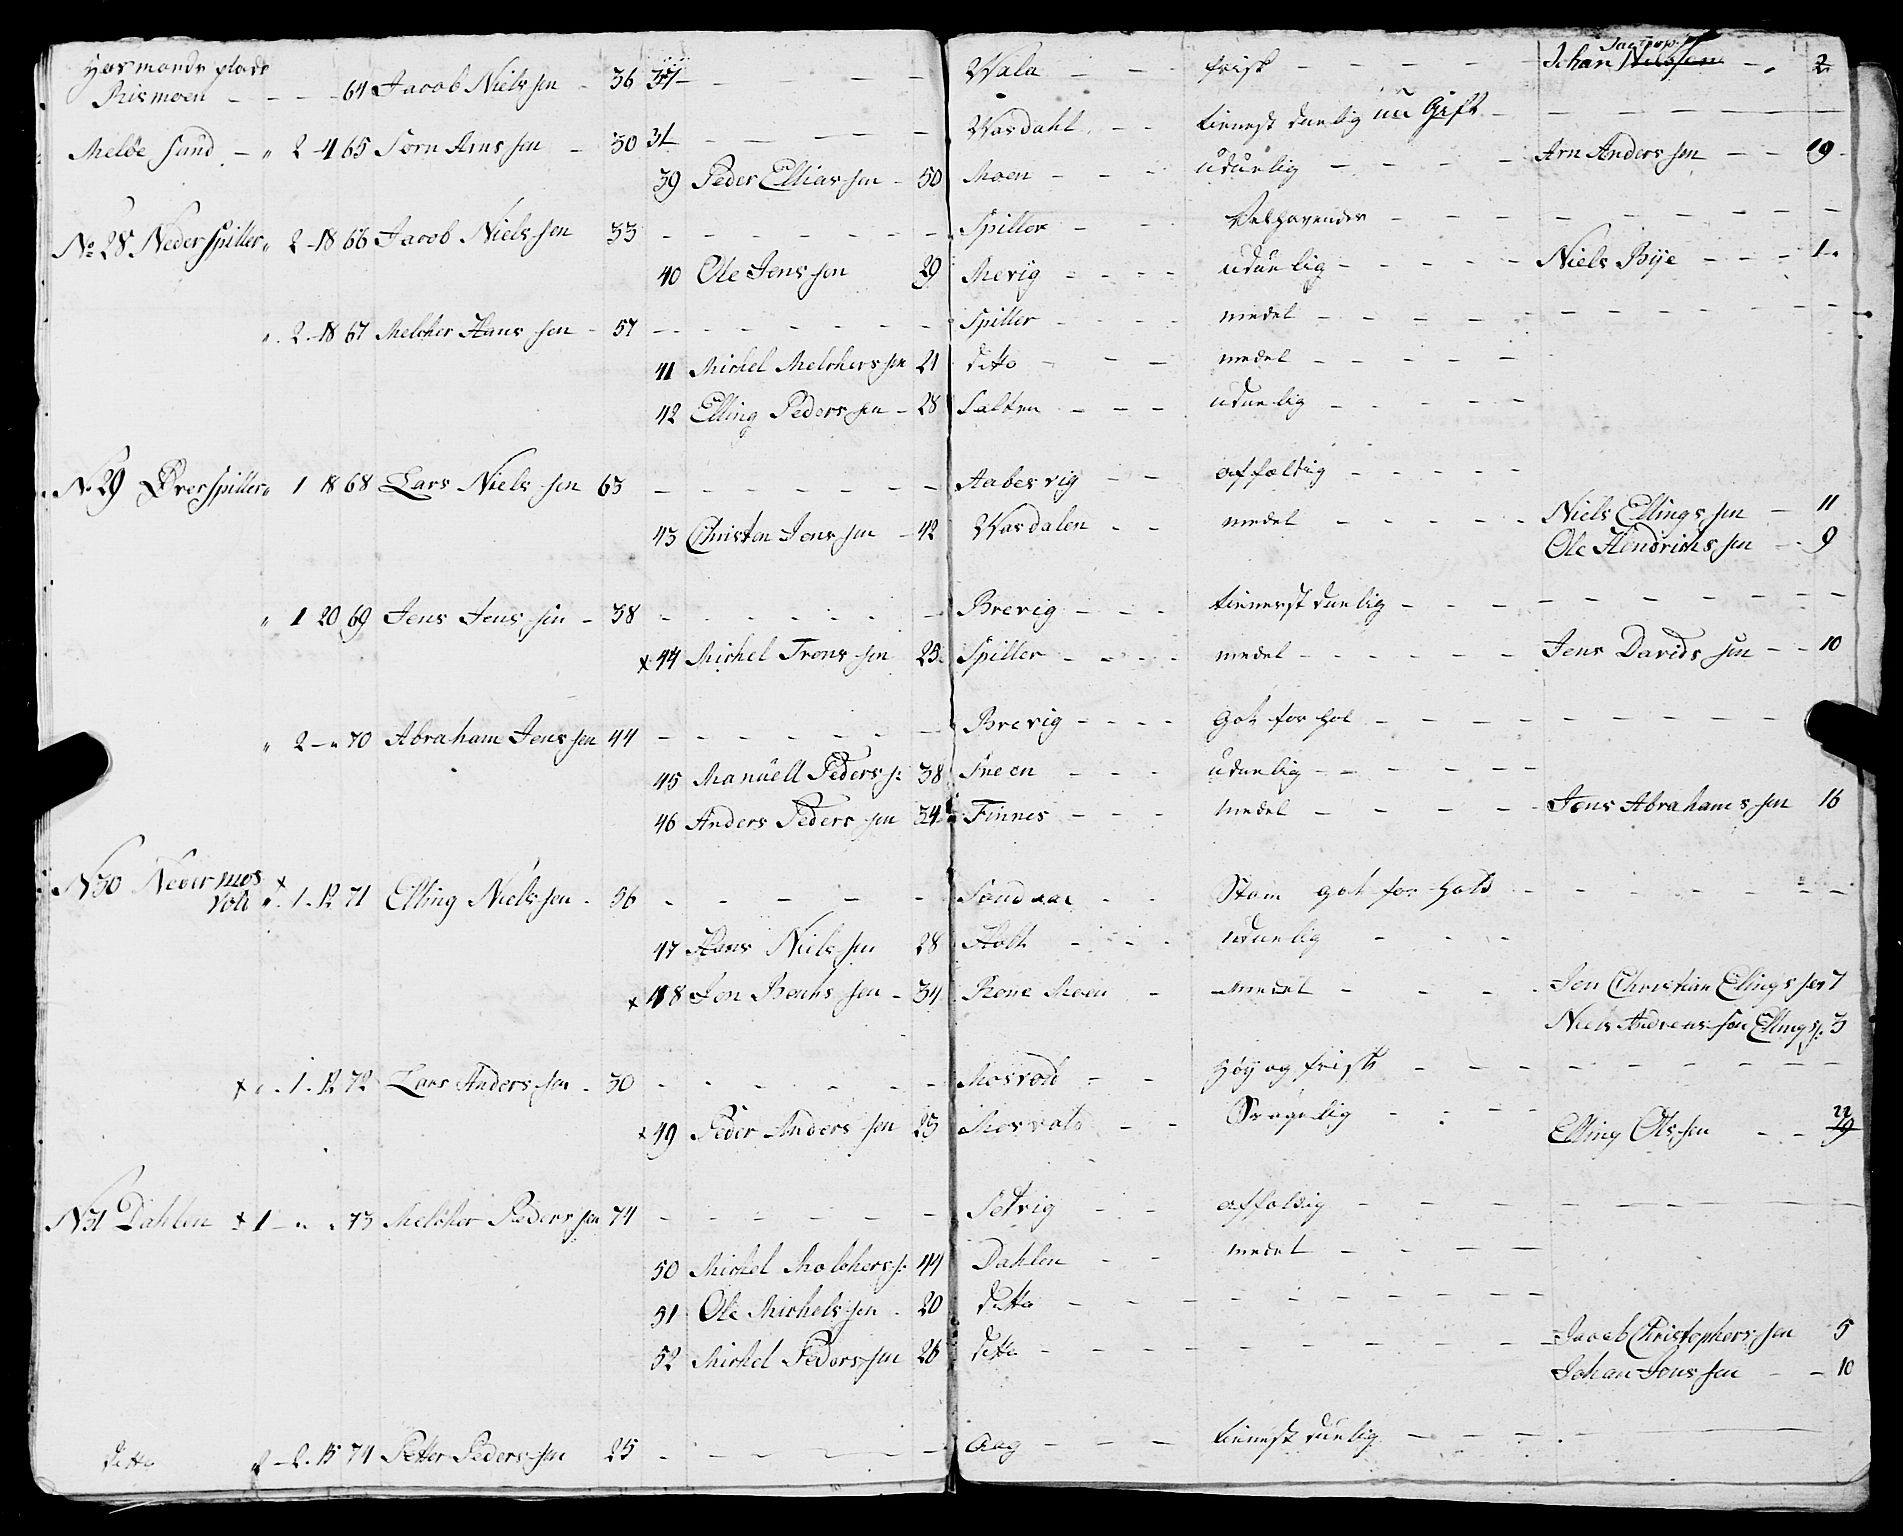 Huusmands plads
Riismoen - - - - 64 Jacob Nielssen - 36 37 - - - - Wala - - - frisk - - - - - Johan Jacobs: Nielssen - . 2
Meløe sund - " 2 - 4 65 Sørn Arnssen - 30 31 - - - - Wasdahl - - tienest duelig nu Gift - - - - -
39 Peder Elliassen - 50 Moen - - - uduelig - - - - - Arn Anderssen - - 19
No 28 Neder Spiller " 2 - 18 66 Jacob Nielssen 33 - - - - - - - Spiller - - - Velhavender - - - - -
40 Ole Jenssen 29 Mevig - - - - uduelig - - - - - Niels Bye - - - 1
" 2 - 18 67 Melcher Hanssen - 57 - - - - - - - Spiller - - - - medel - - - - -
41 Michel Melcherssen 21 ditto - - - medel - - - - -
42 Elling Pederssen - 28 Salten - - - uduelig - - - - -
No 29 Øver Spiller " 1 18 68 Lars Nielssen 63 - - - - - - - Aabesvig - - affældig - - - - -
43 Christen Jenssen - 42 Wasdalen - - medel - - - - - Niels Ellingssen - 11
Ole Hendrichssen - - 9
" 1 20 69 Jens Jenssen - 38 - - - - - - - Brevig - - - tienest duelig - - - - -
x 44 Michel Tronssen 25 Spiller - - - - medel - - - - - Jens Davidssen - - 10
" 2 - " 70 Abraham Jenssen 44 - - - - - - - Brevig - - - - Got for hol - - - - -
45 Manuell Peders: 38 Sneen - - - uduelig - - - - -
46 Anders Pederssen 34 Finnes - - - medel - - - - - Jens Abrahamssen 16
N 30 Neder mos
vold x " 1 - 12 71 Elling Nielssen - 36 - - - - - Sandaae - - Stam got for hold - - - - -
47 Hans Nielssen 28 Holt - - - uduelig - - -
x 48 Jon Bentssen - 34 Rone Moen - medel - - - - Jon Christian Ellingssen 7
Niels Andreas son Ellings: 3
x " 1 - 12 72 Lars Anderssen - 30 - - - - - - Mosvold - - Høy og frisk - - - - -
x 49 Peder Anderssen 23 Mosvold - - - - - - Elling Olssen - - 22 19
N 31 Dahlen x 1 - " - 73 Melcher Pederssen 74 - - - - - - Selvig - - affældig - - - - -
50 Michel Melchers: 44 Dahlen - - medel - - - -
51 Ole Michelssen - 20 ditto - - - - - - - -
52 Michel Pederssen 26 ditto - - - - - - - - Jacob Christopherssen 5
Johan Jonssen - - 10
ditto 2 - 2 - 15 74 Petter Pederssen 25 - - - - - - Aag - - - - tienest duelig - - - - -